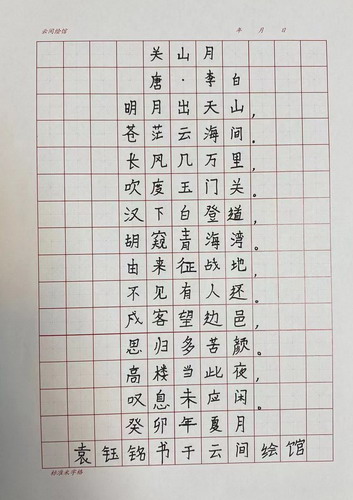 云间绘馆
年 月 日
关山月
唐·李白
明月出天山，
苍茫云海间。
长风几万里，
吹度玉门关。
汉下白登道，
胡窥青海湾。
由来征战地，
不见有人还。
戍客望边邑，
思归多苦颜。
高楼当此夜，
叹息未应闲。
癸卯年夏月
袁钰铭书于云间绘馆